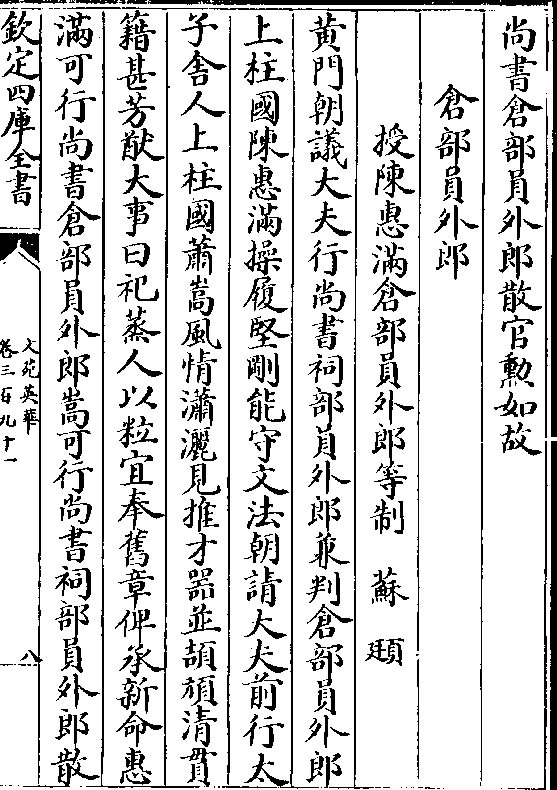 尚書倉部員外郎散官勲如故
倉部員外郎
授陳惠滿倉部員外郎等制　蘇頲
黄門朝議大夫行尚書祠部員外郎兼判倉部員外郎
上柱國陳惠滿操履堅剛能守文法朝請大夫前行太
子舍人上柱國蕭嵩風情瀟灑見推才器並頡頏清貫
籍甚芳猷大事曰祀蒸人以粒宜奉舊章俾承新命惠
滿可行尚書倉部員外郎嵩可行尚書祠部員外郎散
欽定四庫全書
文苑英華
卷三百九十一
八